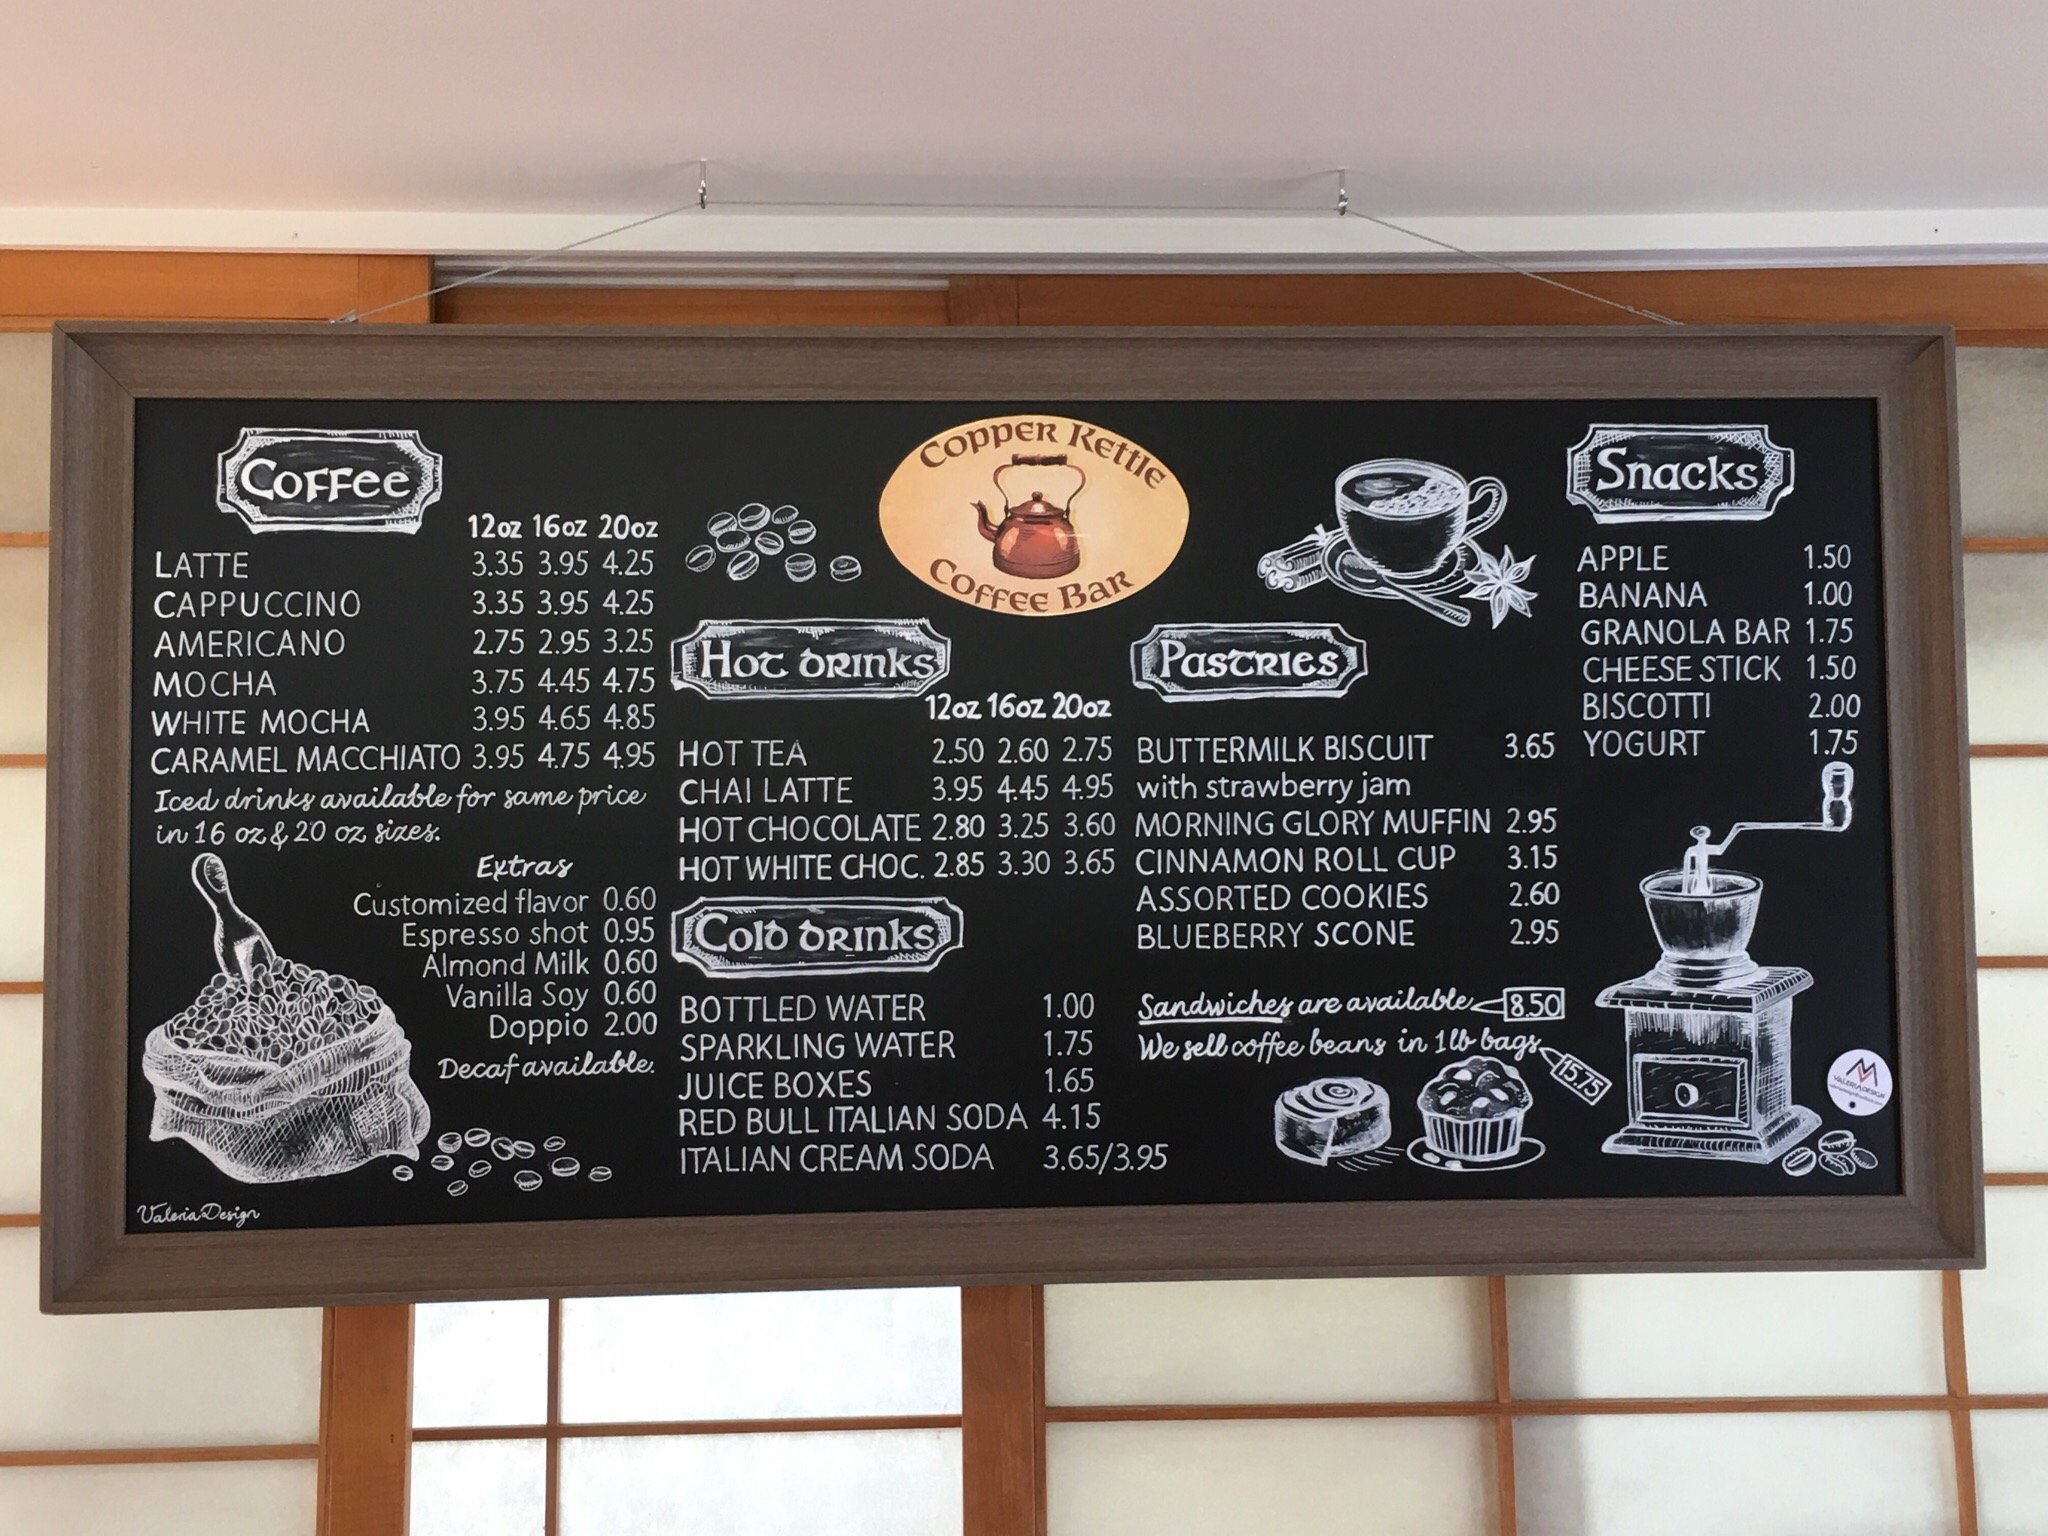 Copper Kettle
Coffee Bar
Coffee
12oz 16oz 20oz
LATTE 3.35 3.95 4.25
CAPPUCCINO 3.35 3.95 4.25
AMERICANO 2.75 2.95 3.25
MOCHA 3.75 4.45 4.75
WHITE MOCHA 3.95 4.65 4.85
CARAMEL MACCHIATO 3.95 4.75 4.95
Iced drinks available for same price
in 16 oz & 20 oz sizes.
Extras
Customized flavor 0.60
Espresso shot 0.95
Almond Milk 0.60
Vanilla Soy 0.60
Doppio 2.00
Decaf available.
Valeria Design
Hot drinks
12oz 16oz 20oz
HOT TEA 2.50 2.60 2.75
CHAI LATTE 3.95 4.45 4.95
HOT CHOCOLATE 2.80 3.25 3.60
HOT WHITE CHOC. 2.85 3.30 3.65
Cold drinks
BOTTLED WATER 1.00
SPARKLING WATER 1.75
JUICE BOXES 1.65
RED BULL ITALIAN SODA 4.15
ITALIAN CREAM SODA 3.65/3.95
Pastries
BUTTERMILK BISCUIT 3.65
with strawberry jam
MORNING GLORY MUFFIN 2.95
CINNAMON ROLL CUP 3.15
ASSORTED COOKIES 2.60
BLUEBERRY SCONE 2.95
Sandwiches are available 8.50
We sell coffee beans in 1lb bags 15.75
Snacks
APPLE 1.50
BANANA 1.00
GRANOLA BAR 1.75
CHEESE STICK 1.50
BISCOTTI 2.00
YOGURT 1.75
VALERIA DESIGN